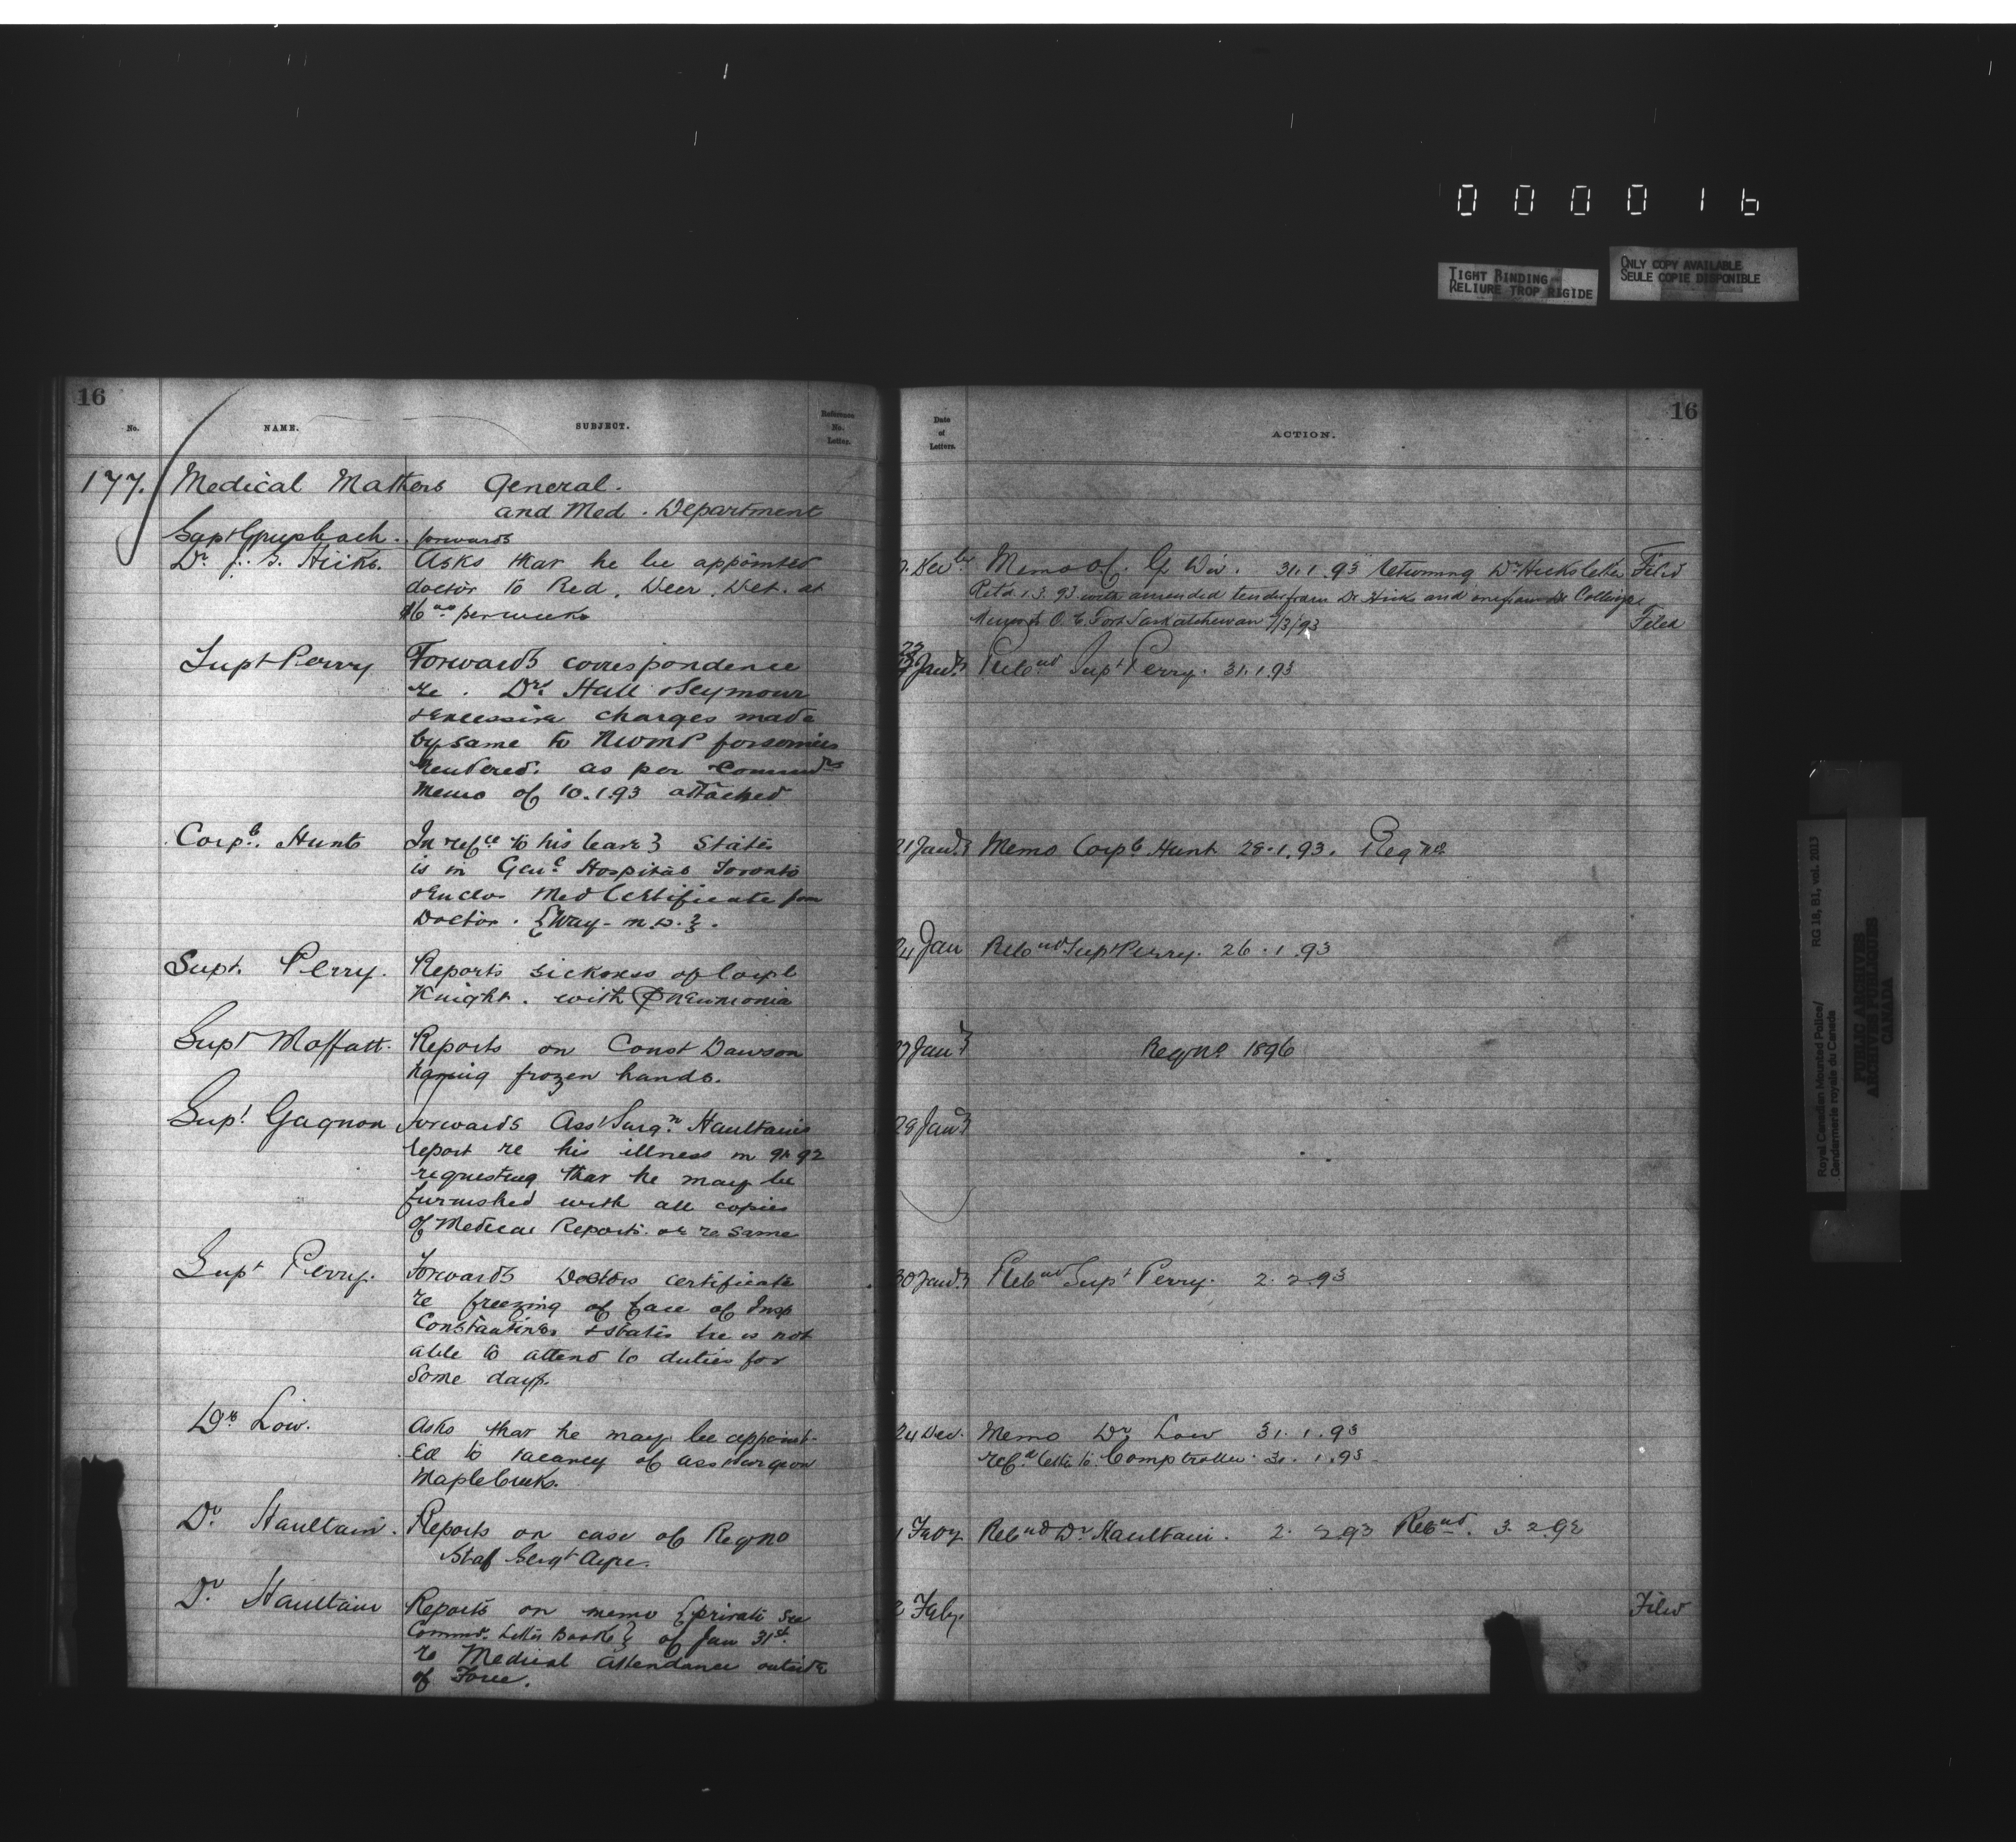 000016
TIGHT BINDING
RELIURE TROP RIGIDE
ONLY COPY AVAILABLE
SEULE COPIE DISPONIBLE
16
No.
NAME.
SUBJECT.
Reference
No.
Letter.
177. Medical Matters General.
and Med. Department
forwards
Dr. J. G. Hicks. Asks that he be appointed
doctor to Red. Deer. Det. at
$6 00 per week
Supt Perry Forwards correspondence
re. Drs Hall & Seymour
& excessive charges made
by same to NWMP for services
rendered. as per Commrs
Memo of 10.1.93 attached
Corpl. Hunt In refce to his leave } States
is in Genl Hospital Toronto
& enclos Med Certificate from
Doctor. {Way - M.D.}.
Supt. Perry. Reports sickness of Corpl
Knight. with Pneumonia
Supt Moffatt. Reports on Const Dawson
having frozen hands.
Supt Gagnon forwards Asst Surgn Haultain's
report re his illness in 91 92
requesting that he may be
furnished with all copies
of Medical Reports. re same
Supt Perry. Forwards Doctors certificate
re freezing of face of Insp
Constantine & states he is not
able to attend to duties for
some days.
Dr Low. Asks that he may be appoint-
ed to vacancy of Asst Surgeon
Maple Creek.
Dr Haultain. Reports on case of Regno
Staf Sergt Ayre.
Dr. Haultain Reports on memo {private See
Commr. Letter Book} of Jan 31st.
re Medical Attendance outside
of Force.
16
Date
of
Letters.
ACTION.
Memo O.C. G Div. 31.1.93 returning Dr Hicks letter Filed
Retd 1.3.93 with amended tender from Dr Hicks and one from Dr
Memo to O.C. Fort Saskatchewan 7/3/93 Filed
Jany Supt Perry. 31.1.93
21 Jany Memo Corpl Hunt 28.1.93. Regno
24 Jan Supt Perry. 26.1.93
27 Jany Regno 1896
28 Jany
30 Jany Supt Perry. 2.2.93
24 Dec. Memo Dr Low 31.1.93
refd letter to Comptroller 31.1.93
1 Feby Dr. Haultain. 2.2.93 3.2.92
2 Feby. Filed
Royal Canadian Mounted Police/
Gendarmerie royale du Canada
RG 18, B1, vol. 2013
PUBLIC ARCHIVES
ARCHIVES PUBLIQUES
CANADA